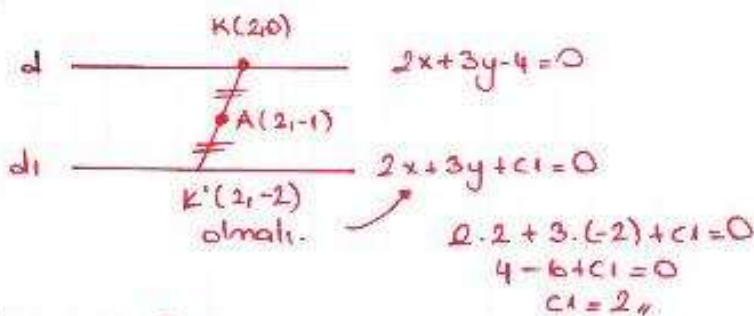 K(2,0)
d 2x+3y-4=0
A(2,-1)
d1 2x+3y+c1=0
K'(2,-2)
olmalı.
2.2+3.(-2)+c1=0
4-6+c1=0
c1=2,,